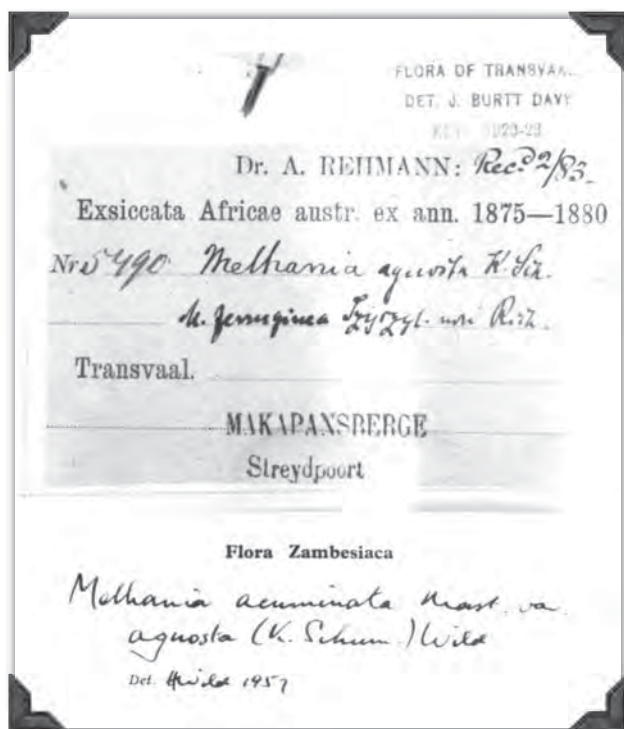 FLORA OF TRANSVAAL
DET. J. BURTT DAVY
Dr. A. REHMANN: Rec.d 2/83.
Exsiccata Africae austr. ex ann. 1875—1880
Nr 5490 Melhania agnosta K. Sch.
M. ferruginea Szyszyl. non Rich.
Transvaal.
MAKAPANSBERGE
Streydpoort
Flora Zambesiaca
Melhania acuminata Mast. var.
agnosta (K. Schum.) Wild
Det. HWild 1957